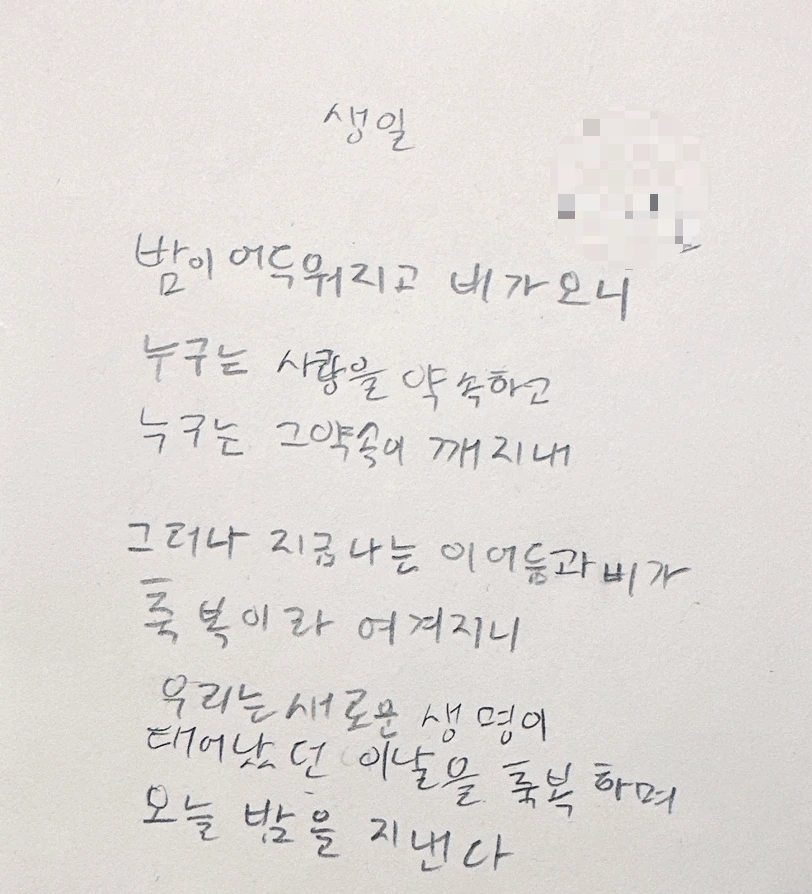 생일
밤이 어두워지고 비가오니
누구는 사랑을 약속하고
누구는 그약속이 깨지내
그러나 지금나는 이어둠과 비가
축복이라 여겨지니
우리는 새로운 생명이
태어났던 이날을 축복하며
오늘 밤을 지낸다